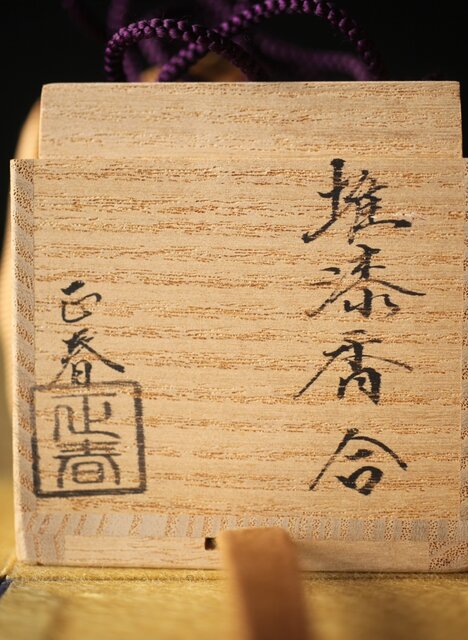 堆漆香合
正春
正春